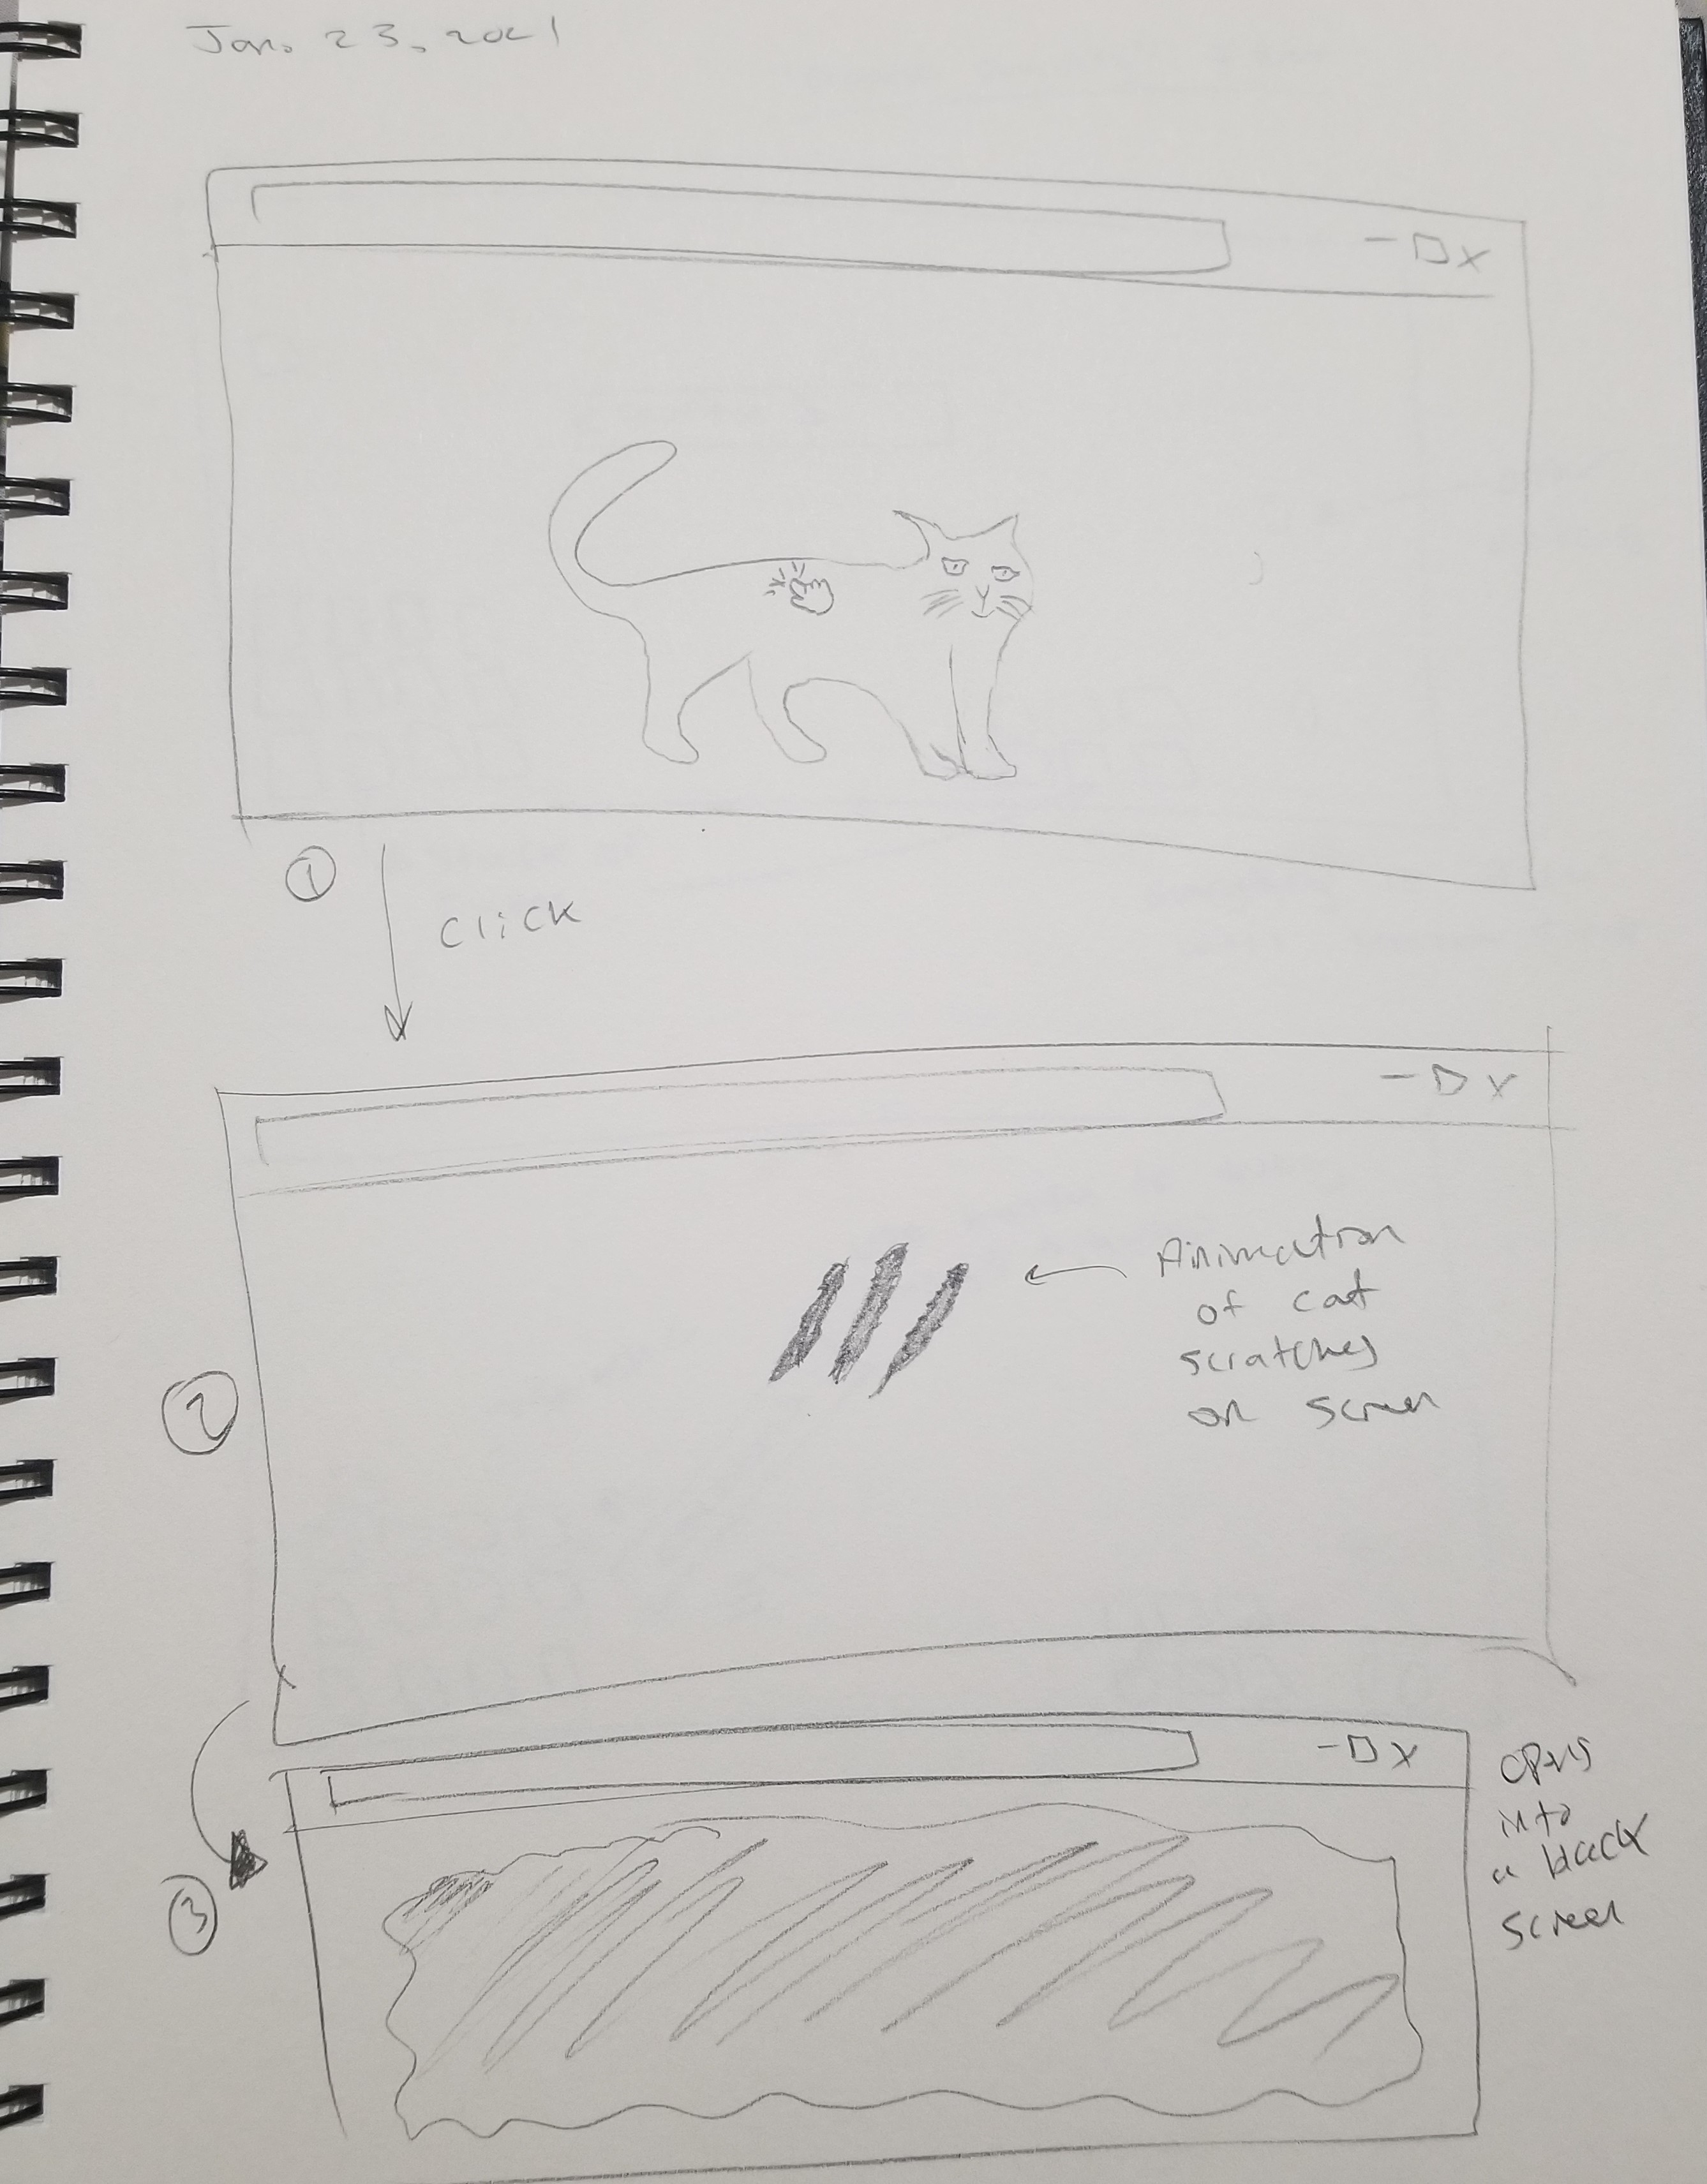 Jan. 23, 2021
- □ X
①
Click
- □ X
Animation
of cat
scratches
on screen
②
- □ X
opens
into
a black
screen
③